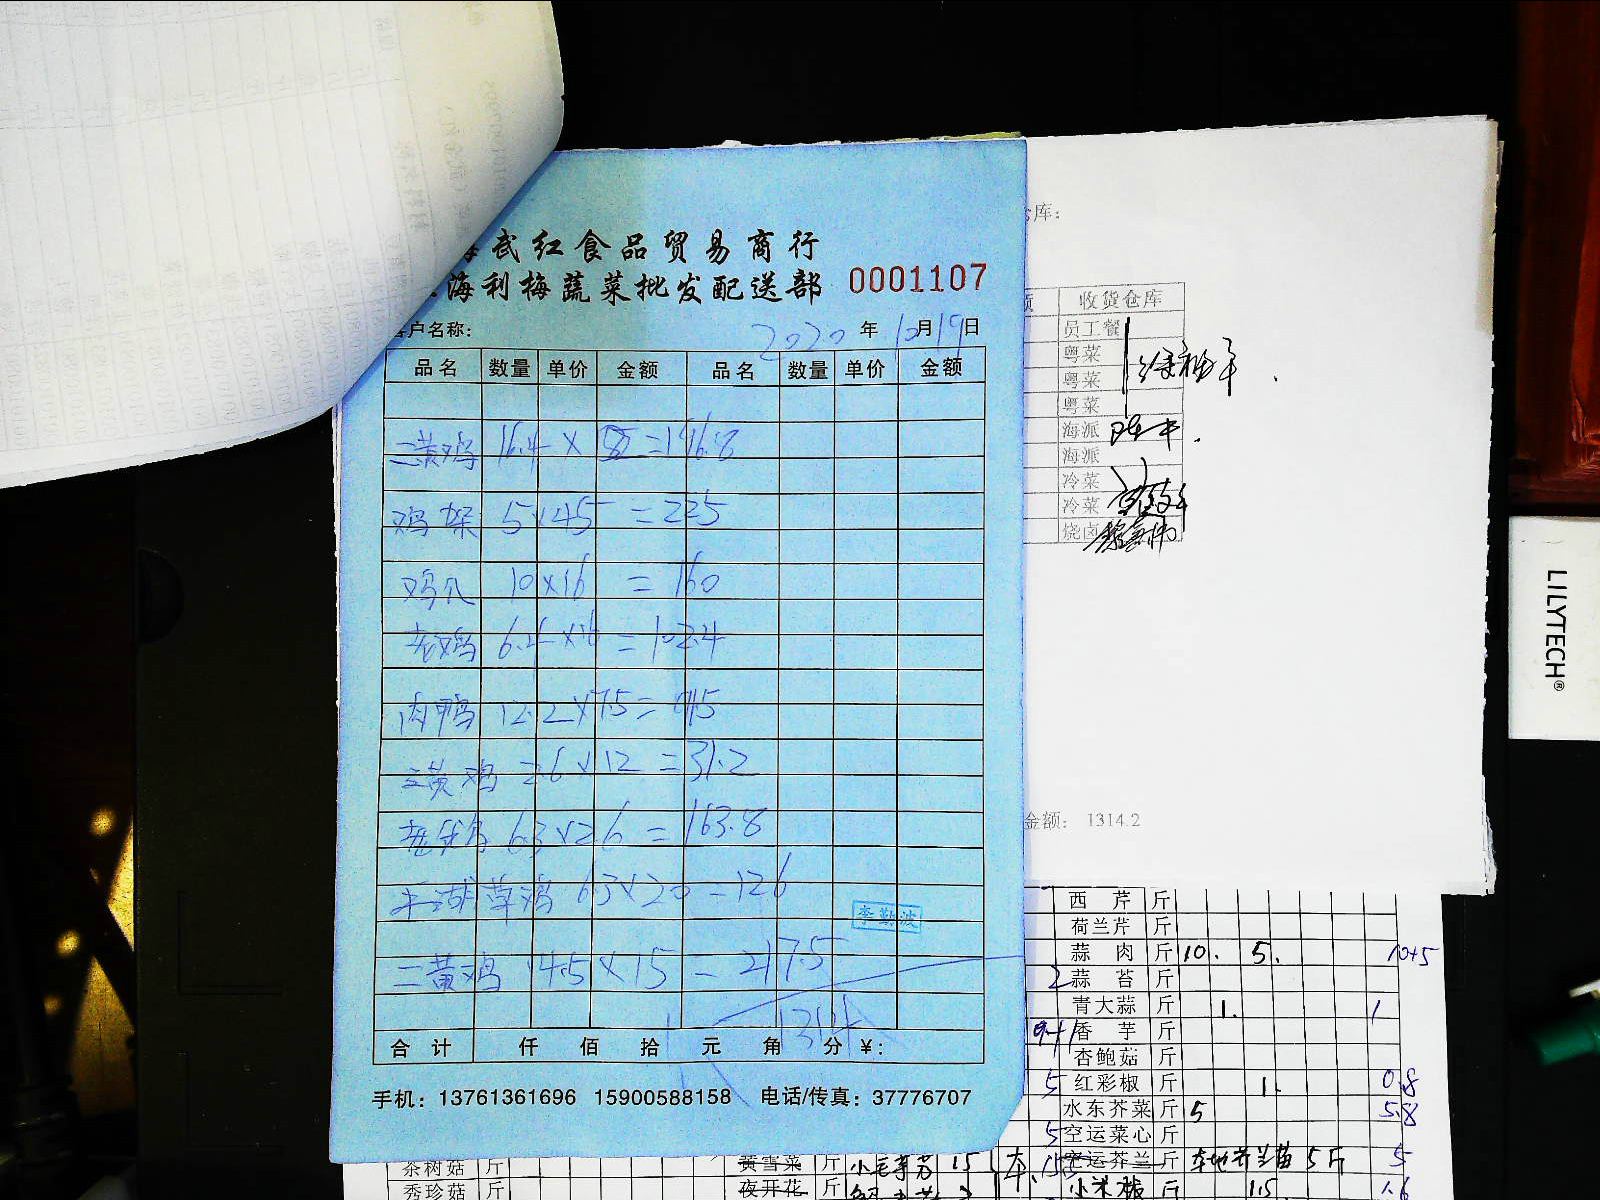 武红食品贸易商行
海利梅蔬菜批发配送部 0001107
户名称: 2020年10月19日
品名 数量 单价 金额 品名 数量 单价 金额
三黄鸡 16.4 × 12 = 196.8
5×45 = 225
鸡爪 10×16 = 160
老鸡 6.4×16 = 102.4
肉鸭 12.2×7.5 = 91.5
三黄鸡 2.6×12 = 31.2
6.3×26 = 163.8
草鸡 6.3×20 = 126
李勤波
三黄鸡 14.5×15 = 217.5
1314
合计 仟 佰 拾 元 角 分 ¥:
手机: 13761361696 15900588158 电话/传真: 37776707
库:
收货仓库
员工餐
粤菜
粤菜
粤菜
海派
海派
冷菜
冷菜
烧卤
金额: 1314.2
LILYTECH®
西芹 斤
荷兰芹 斤
蒜肉 斤 10. 5. 10+5
2 蒜苔 斤
青大蒜 斤 1. 1
9+1 香芋 斤
杏鲍菇 斤
5 红彩椒 斤 1. 0.8
水东芥菜 斤 5 5.8
5 空运菜心 斤
空运芥兰 斤 本地芥兰苗 5斤 5
小米椒 斤 1.5 1.6
茶树菇 斤 黄雪菜 斤 15
秀珍菇 斤 夜开花 斤